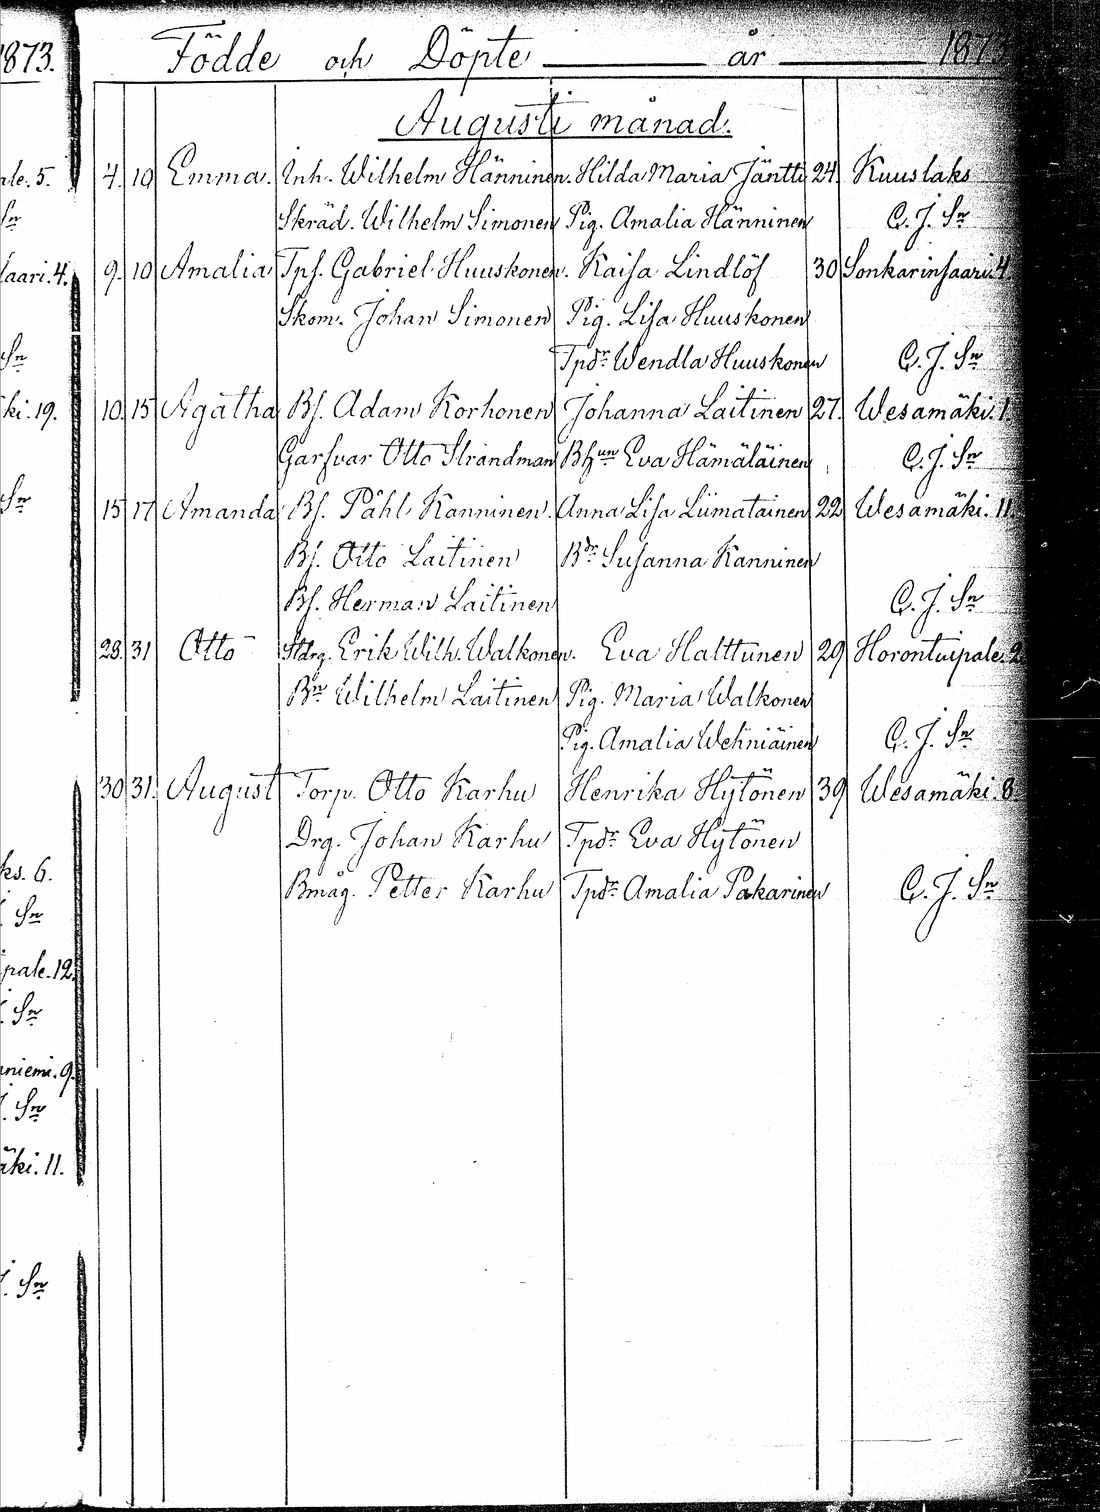 1873.
Födde och Döpte år 1873
Augusti månad.
ale. 5. 7. 10 Emma. Inh. Wilhelm Hänninen. Hilda Maria Jäntti 24 Kuuslaks
Sn Skräd. Wilhelm Simonen Pig. Amalia Hänninen C. J. Sn
aari. 4. 9. 10 Amalia Tps. Gabriel Huuskonen. Kaisa Lindlöf 30 Sonkarinsaari. 4
Skom. Johan Simonen Pig. Lisa Huuskonen
Sn Tpdr Wendla Huuskonen C. J. Sn
ki. 19. 10. 15 Agatha Bs. Adam Korhonen Johanna Laitinen 27. Wesamäki. 1.
Garfvar Otto Strandman Bhun Eva Hämäläinen C. J. Sn
Sn 15 17 Amanda Bs. Påhl Kanninen. Anna Lisa Liimatainen 22 Wesamäki. 11.
Bs. Otto Laitinen Bdr Susanna Kanninen
Bs. Herman Laitinen C. J. Sn
28. 31 Otto Stdrg. Erik Wilh. Walkonen. Eva Halttunen 29 Horontaipale. 2.
Bn Wilhelm Laitinen Pig. Maria Walkonen
Pig. Amalia Wehniäinen C. J. Sn
30 31. August Torp. Otto Karhu Henrika Hytönen 39 Wesamäki. 8.
Drg. Johan Karhu Tpdr Eva Hytönen
ks. 6. Bmåg. Petter Karhu Tpdr Amalia Pakarinen C. J. Sn
Sn
pale. 12.
Sn
niemi. 9.
Sn
äki. 11.
Sn